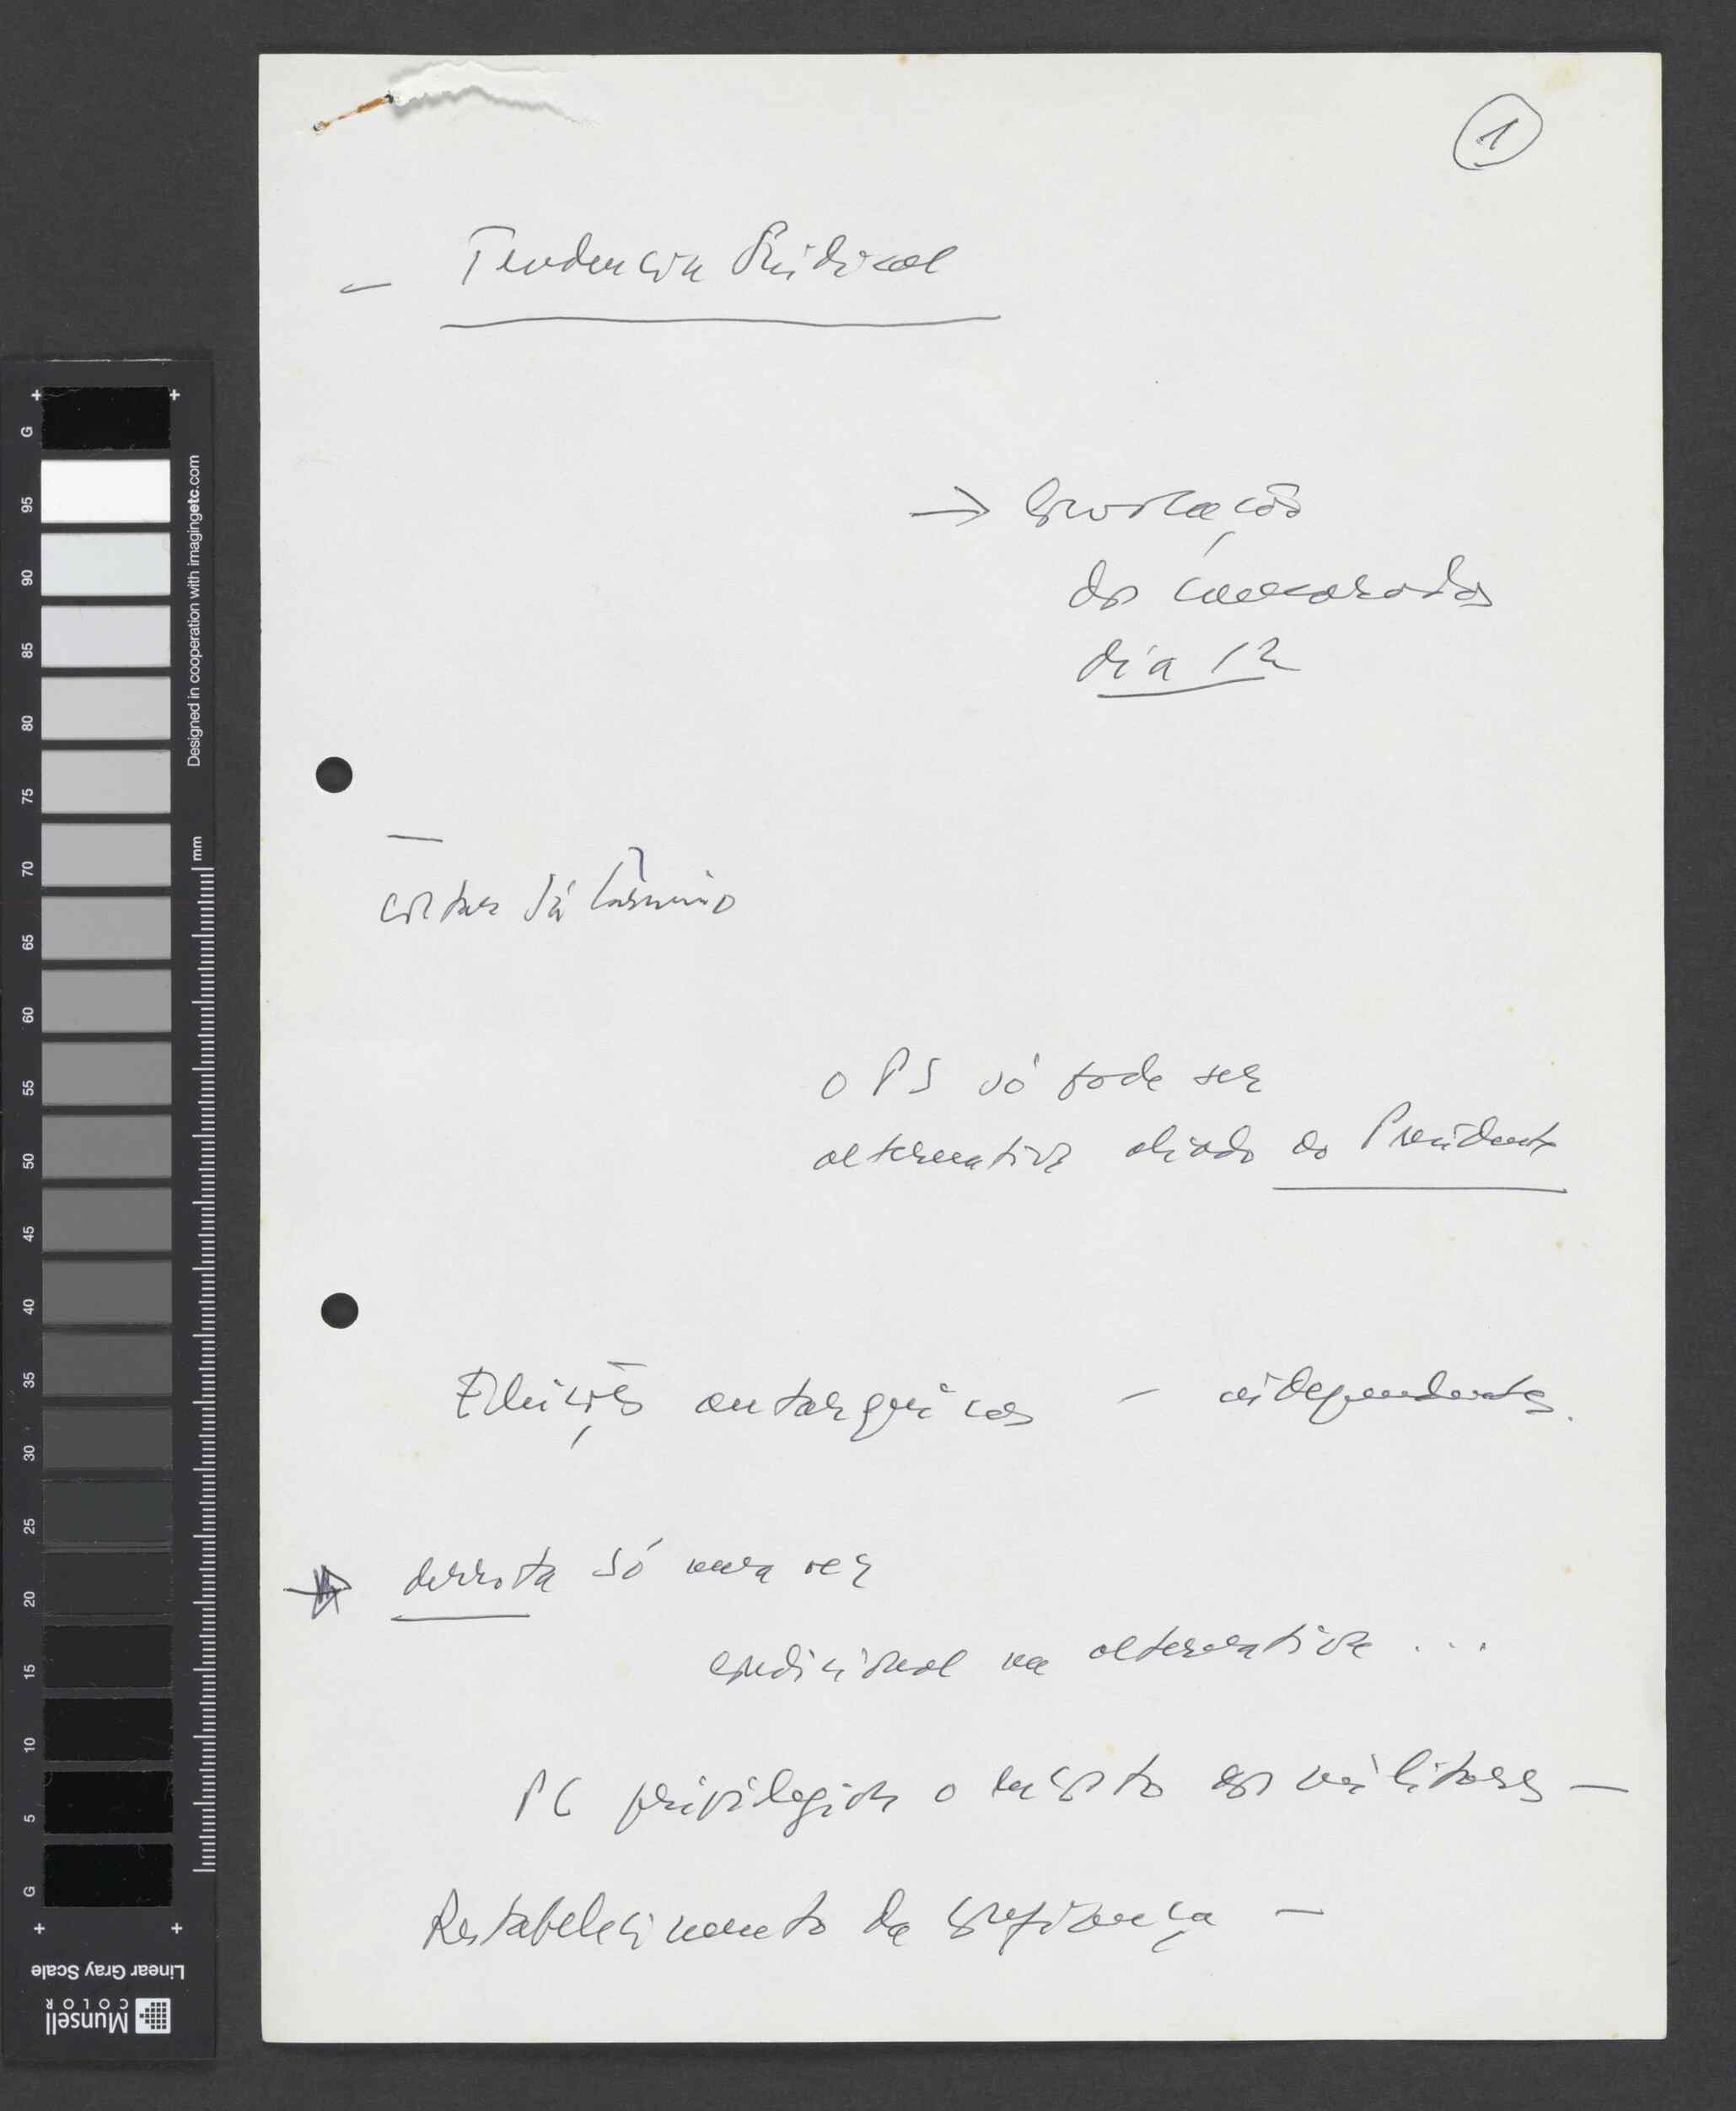 1
— Tendencia Sindical
→ Convocação
dos camaradas
dia 12
—
cortar Sá Carneiro
o PS só pode ser
alternativa aliado ao Presidente
Eleições autarquicas — independentes.
derrota só uma vez
condicional na alternativa ...
PC privilegia o contacto dos militares —
Restabelecimento da confiança —
G
95
90
85
80
75
70
65
60
55
50
45
40
35
30
25
20
15
10
5
G
mm
Designed in cooperation with imagingetc.com
Linear Gray Scale
Munsell
COLOR